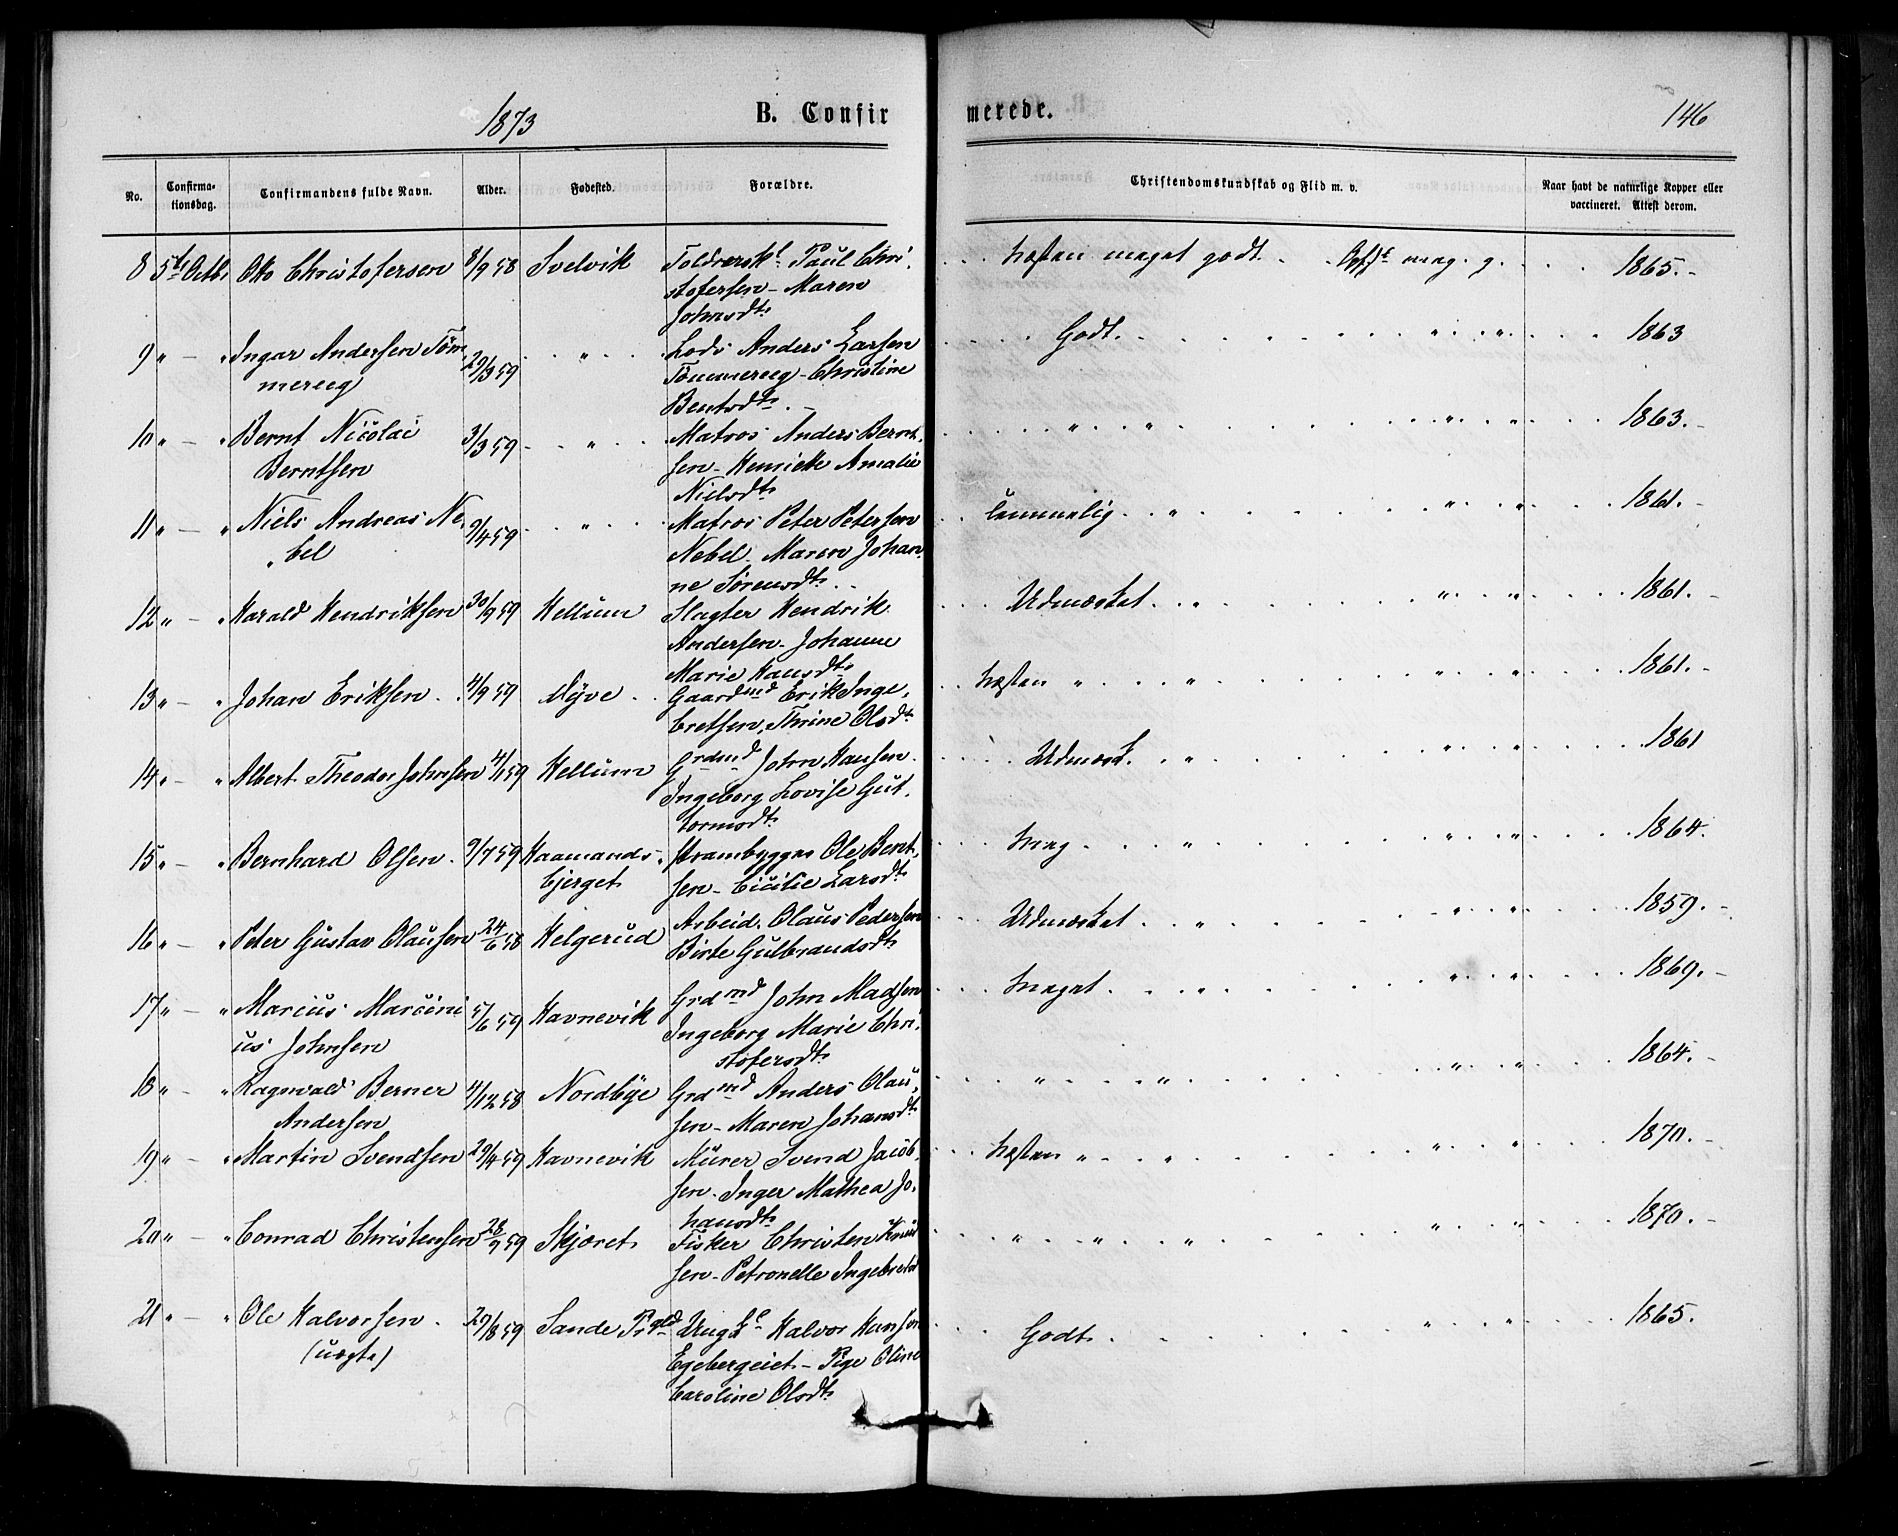 1873
B. Confirmerede.
146
No.
Confirma-
tionsdag.
Confirmandens fulde Navn.
Alder.
Fødested.
Forældre.
Christendomskundskab og Flid m. v.
Naar havt de naturlige Kopper eller
vaccineret. Attest derom.
8 5te Octb. Otto Christofersen 8/9 58 Svelvik Toldrorsk. Paul Chri-
stofersen - Maren
Johnsdtr
næsten meget godt. Opf. meg. g. 1865.-
9 " - " Ingar Andersen Töm- 29/3 59 " Lods Anders Larsen
mereeg Tömmereeg - Christine
Bentsdtr. -
Godt. " " 1863
10 " - " Bernt Nicolai 3/3 59 - " Matros Anders Bernt-
Berntsen sen - Henriette Amalie
Nielsdtr
" " " " 1863.-
11 " - " Niels Andreas Ne- 9/4 59 " Matros Peter Petersen
bel Nebel - Maren Johan-
ne Sörensdtr.
temmelig " " " 1861.-
12 " - " Harald Hendriksen 30/9 59 Hellum Slagter Hendrik
Andersen - Johanne
Marie Hansdtr
Udmærket " " " 1861.-
13 " - " Johan Eriksen 4/9 59 Myve Gaardmd Erik Inge-
bretsen, Thrine Olsdtr
næsten " " " " 1861.-
14 " - " Albert Theodor Johnsen 4/1 59 Hellum Grdmd John Hansen
Ingeborg Lovise Gut-
tormsdtr
Udmærk. " " " 1861
15 " - " Bernhard Olsen 9/7 59 Kaamands- Prambygger Ole Bent-
bjerget sen - Cicilie Larsdtr
Meg " " 1864.
16 " - " Peter Gustav Olausen 24/6 58 Helgerud Arbeid. Olaus Pedersen
Birte Gulbrandsdtr
Udmærket " " " 1859.-
17 " - " Marcus Marcini- 5/6 59 Havnevik Grdmd John Madsen
us Johnsen Ingeborg Marie Chri-
stofersdtr
Meget " " " 1869.-
18 " - " Ragnvald Berner 4/12 58 Nordbye Grdmd Anders Olau-
Andersen sen - Maren Johansdtr
" " " " 1864.-
19 " - " Martin Svendsen 29/4 59 Havnevik Murer Svend Jacob-
sen - Inger Mathea Jo-
hansdtr
næsten " " " " 1870.-
20 " - " Conrad Christensen 28/9 59 Skjøret Fisker Christen Knud-
sen - Petronelle Ingebretsd
" " " " " 1870.-
21 " - " Ole Halvorsen 29/8 59 Sande Prgld Ungk. Halvor Hansen
(uægte) Egebergeiet - Pige Oline
Caroline Olsdtr
Godt " " 1865.